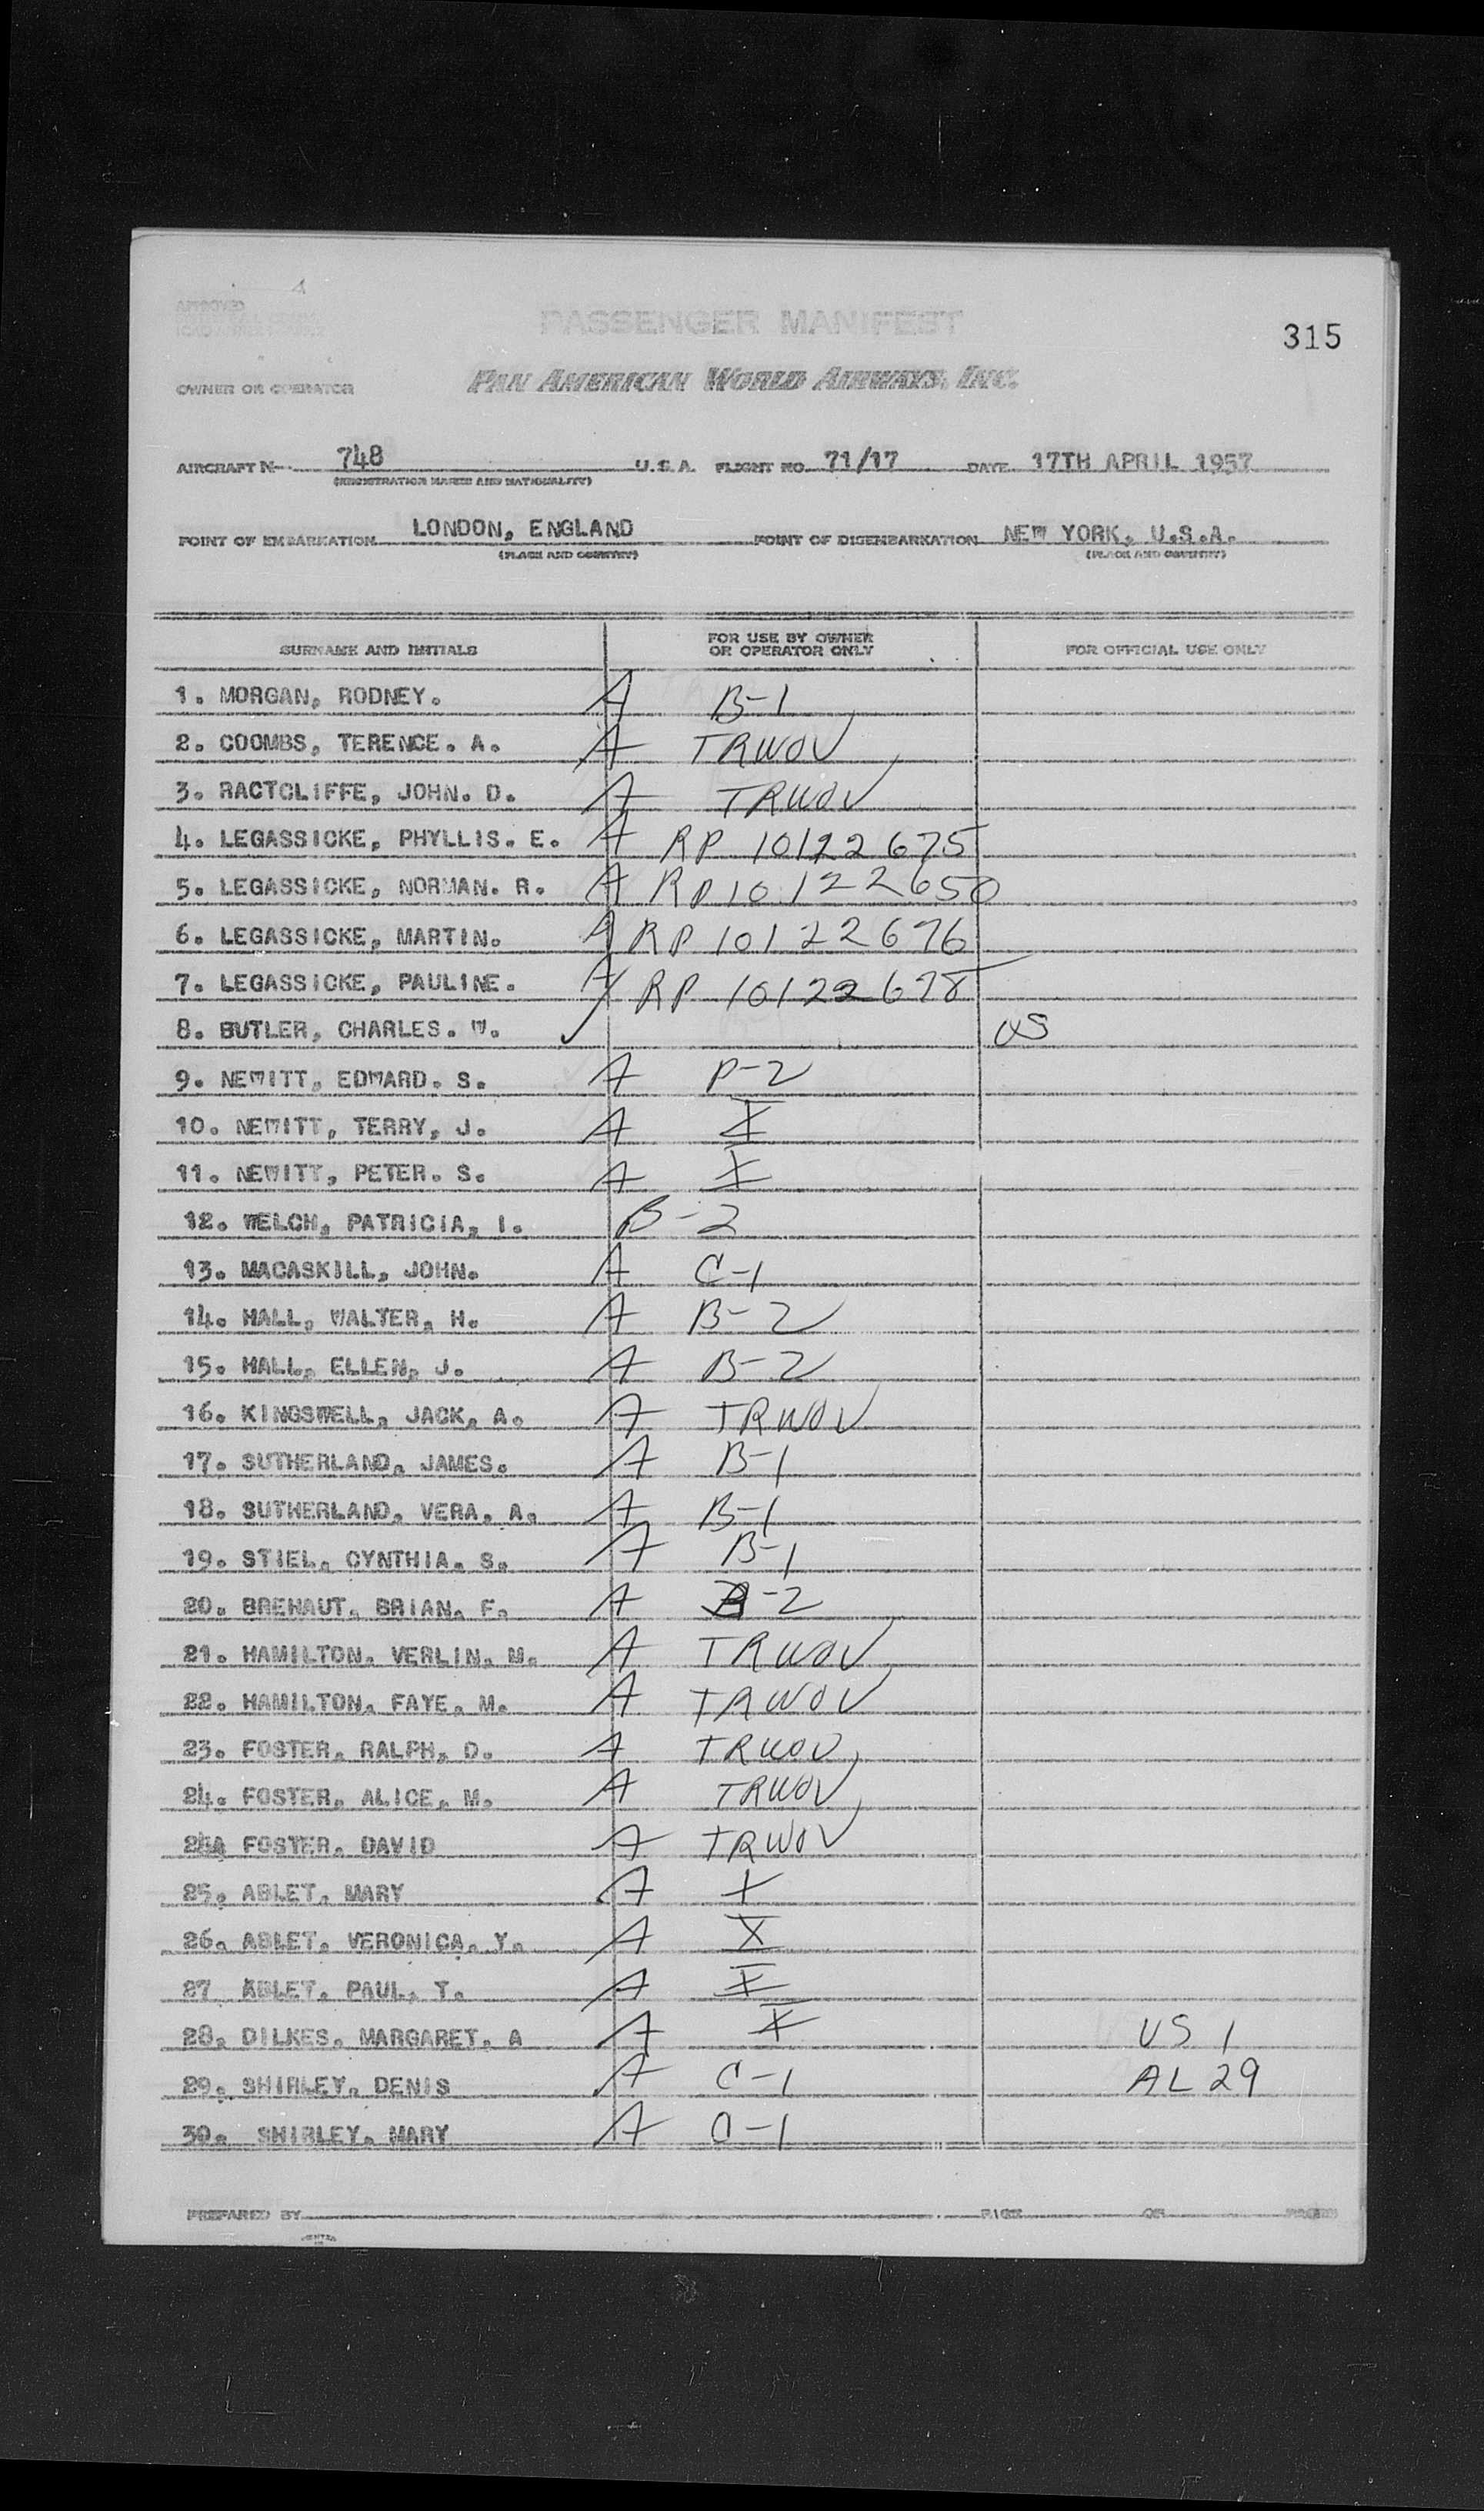 PASSENGER MANIFEST
315
OWNER OR OPERATOR PAN AMERICAN WORLD AIRWAYS, INC.
AIRCRAFT N- 748 U.S.A. FLIGHT NO. 71/17 DATE 17TH APRIL 1957
(REGISTRATION MARKS AND NATIONALITY)
POINT OF EMBARKATION LONDON, ENGLAND POINT OF DISEMBARKATION NEW YORK, U.S.A.
(PLACE AND COUNTRY) (PLACE AND COUNTRY)
SURNAME AND INITIALS FOR USE BY OWNER OR OPERATOR ONLY FOR OFFICIAL USE ONLY
1. MORGAN, RODNEY. A B-1
2. COOMBS, TERENCE. A. A TRWOV
3. RACTCLIFFE, JOHN. D. A TRWOV
4. LEGASSICKE, PHYLLIS. E. A RP 10122675
5. LEGASSICKE, NORMAN. R. A RP 10122650
6. LEGASSICKE, MARTIN. A RP 10122676
7. LEGASSICKE, PAULINE. A RP 10122678
8. BUTLER, CHARLES. W. ✓ US
9. NEWITT, EDWARD. S. A P-2
10. NEWITT, TERRY, J. A X
11. NEWITT, PETER. S. A X
12. WELCH, PATRICIA, I. B-2
13. MACASKILL, JOHN. A C-1
14. HALL, WALTER, H. A B-2
15. HALL, ELLEN, J. A B-2
16. KINGSWELL, JACK, A. A TRWOV
17. SUTHERLAND, JAMES. A B-1
18. SUTHERLAND, VERA, A. A B-1
19. STIEL, CYNTHIA. S. A B-1
20. BREHAUT, BRIAN, F. A B-2
21. HAMILTON, VERLIN, M. A TRWOV
22. HAMILTON, FAYE, M. A TRWOV
23. FOSTER, RALPH, D. A TRWOV
24. FOSTER, ALICE, M. A TRWOV
24A FOSTER, DAVID A TRWOV
25. ABLET, MARY A X
26. ABLET, VERONICA, Y. A X
27 ABLET, PAUL, T. A X
28. DILKES, MARGARET, A A X US 1
29. SHIRLEY, DENIS A C-1 AL 29
30. SHIRLEY, MARY A C-1
PREPARED BY PAGE OF PAGES